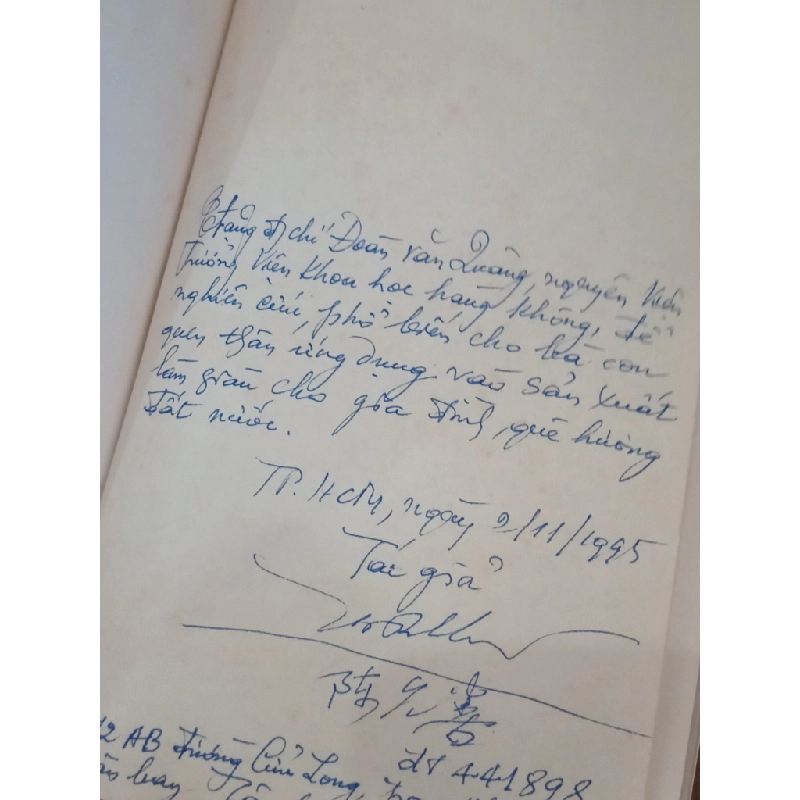 Tặng đ/chí Đoàn Văn Quảng, nguyên Viện
trưởng Viện Khoa học hàng không, để
nghiên cứu, phổ biến cho bà con
quen thân ứng dụng vào sản xuất
làm giàu cho gia đình, quê hương
đất nước.
TP. HCM, ngày 2/11/1995
Tác giả
2 AB đường Cửu Long,
bay
đt 441898